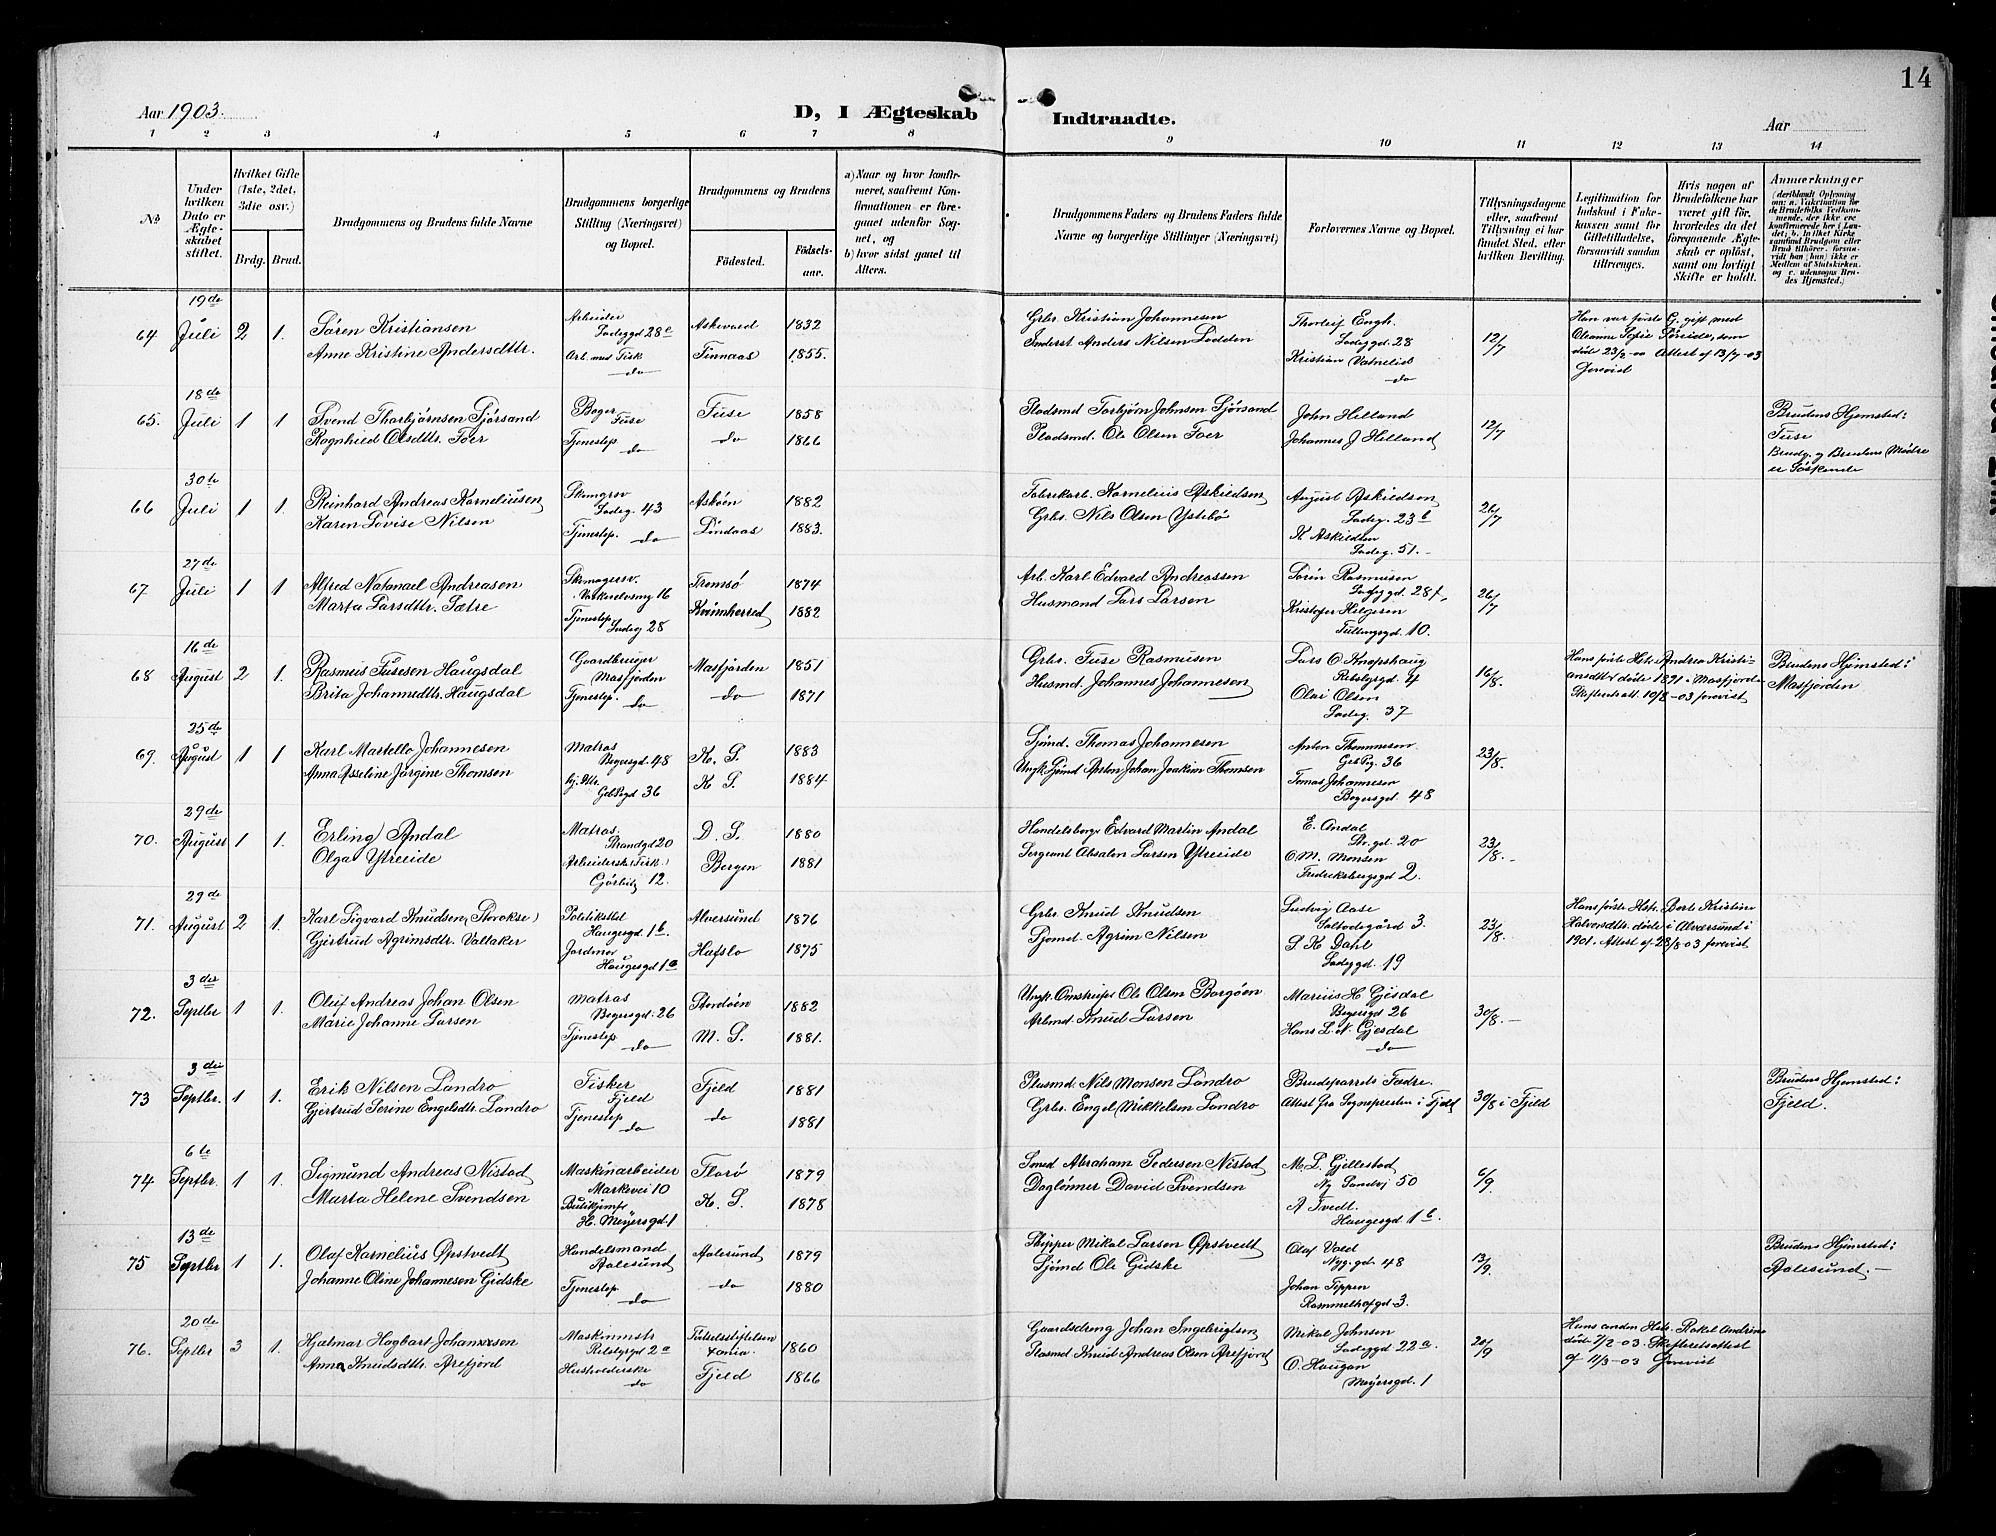 14
Aar 1903.
D, I Ægteskab Indtraadte.
Aar
1 2 3 4 5 6 7 8 9 10 11 12 13 14
No
Under hvilken Dato er Ægteskabet stiftet.
Hvilket Gifte (1ste, 2det, 3die osv.)
Brdg. Brud.
Brudgommens og Brudens fulde Navne
Brudgommens borgerlige Stilling (Næringsvei) og Bopæl.
Brudgommens og Brudens
Fødested. Fødselsaar.
a) Naar og hvor konfirmeret, saafremt Konfirmationen er foregaaet udenfor Sognet, og
b) hvor sidst gaaet til Alters.
Brudgommens Faders og Brudens Faders fulde Navne og borgerlige Stillinger (Næringsvei)
Forlovernes Navne og Bopæl.
Tillysningsdagene eller, saafremt Tillysning ei har fundet Sted, efter hvilken Bevilling.
Legitimation for Indskud i Enkekassen samt for Giftetilladelse, forsaavidt saadan tiltrænges.
Hvis nogen af Brudefolkene har været gift før, hvorledes da det foregaaende Ægteskab er opløst, samt om lovligt Skifte er holdt.
Anmærkninger
64 19de Juli 2 1.
Søren Kristiansen
Anne Kristine Andersdttr.
Arbeider
Ladeggd 28c
Arb. med Fisk
do
Askevold 1832
Finnaas 1855.
Grbr. Kristian Johannesen
Inderst Anders Nilsen Lodden
Thorleif Engh.
Ladeggd. 28
Kristian Vatnelid
do
12/7
Han var første G. gift med
Oleanne Sofie Søreide, som
døde 23/2-00 Attest af 13/7-03
forevist
65. 18de Juli 1 1
Svend Thorbjørnsen Sjørsand
Ragnhild Olsdttr. Foer
Fuse
Tjenestep.
do
Fuse 1858
do 1866
Pladsmd Torbjørn Johnsen Sjørsand
Pladsmd. Ole Olsen Foer
John Helland
Johannes J Helland
12/7
Brudens Hjemsted:
Fuse
Brudg. og Brudens Mødre
er Søskende
66 30te Juli 1 1.
Reinhard Andreas Korneliusen
Karen Lovise Nilsen
Ladeg. 43
Tjenestep. do
Askøen 1882
Lindaas 1883.
Fabrikarb. Kornelius Askildsen
Grbr. Nils Olsen Ystebø
August Askildsen
Ladeg. 23b
K Askildsen
Ladeg. 51.
26/7
67 27de Juli 1 1
Alfred Natanael Andreasen
Marta Larsdttr. Sætre
Skomagersv.
Tjenestep.
Ladeg 28
Tromsø 1874
Kvinnherred 1882
Arb. Karl Edvard Andreassen
Husmand Lars Larsen
Søren Rasmusen
Kristofer Helgesen
10.
26/7
68 16de August 2 1.
Rasmus Fusesen Haugsdal
Brita Johannsdttr. Haugsdal
Gaardbruger
Masfjorden
Tjenestep. do
Masfjorden 1851
do 1871
Grbr. Fuse Rasmusen
Husmd. Johannes Johannesen
Lars O. Knapshaug
4
Olai Olsen
Ladeg. 37
16/8.
Hans første Hstr. Andrea Kristi-
ansdttr døde 1891 i Masfjord
Skifteretsatt. 10/8-03 forevist
Brudens Hjemsted:
Masfjorden
69. 25de August 1 1
Karl Martello Johannesen
Anna Asseline Jørgine Thomsen
Matros
Bøgersgd. 48
36
K. S. 1883
K S. 1884
Sjømd. Thomas Johannesen
Ungk. Sjømd Anton Johan Joakim Thomsen
Anton Thommesen
36
Tomas Johannesen
Bøgersgd 48
23/8.
70. 29de August 1 1.
Erling Andal
Olga Ytreeide
Matros.
Strandgd 20
12.
D. S. 1880
Bergen 1881
Handelsborger Edvard Martin Andal
Sergeant Absalon Larsen Ytreeide
E. Andal
Str. gd. 20
O. M. Monsen
Fredriksbergsgd 2.
23/8.
71. 29de August 2 1.
Karl Sigvard Knudsen (Storokse)
Gjertrud Agrimsdtr. Valtaker
Haugesgd. 1b.
Jordmor
Haugesgd 1a
Alversund 1876
Hafslo 1875
Grbr. Knud Knudsen
Sjømd. Agrim Nilsen
Ludvig Aase
3.
S. K Dahl
Ladeggd. 19
23/8.
Hans første Hstr. Berte Kristine
Halvorsdttr. døde i Alversund i
1901. Attest af 28/8-03 forevist.
72. 3die Septbr 1 1.
Oluf Andreas Johan Olsen
Marie Johanne Larsen
Matros
Bøgersgd. 26
Tjenestep
do
Stordøen 1882
M. S. 1881.
Ungk. Ole Olsen Borgøen
Arbmd Knud Larsen
Marius H. Gjesdal
Bøgersgd 26
Hans L. N. Gjesdal
do
30/8.
73 3die Septbr. 1 1.
Erik Nilsen Landro
Gjertrud Serine Engelsdtr. Landro
Fisker
Fjeld
Tjenestep
do
Fjeld 1881
do 1881
Plasmd. Nils Monsen Landro
Grbr. Engel Mikkelsen Landro
Brudeparrets Fædre.
Attest fra Sognepresten i Fjeld
30/8 i Fjeld
Brudens Hjemsted:
Fjeld.
74 6te Septbr. 1 1.
Sigmund Andreas Nistad
Marta Helene Svendsen
Maskinarbeider
Markevei 10
Butikjomfr
H. Meyersgd. 1
Florø 1879
K. S. 1878
Smed Abraham Pedersen Nistad
Dagløner David Svendsen
M. L. Gjellestad
50
A Tvedt.
Haugesgd. 1b.
6/9.
75 13de Septbr 1 1.
Olaf Kornelius Øpstvedt
Johanne Oline Johannesen Gidske
Handelsmand
Aalesund
Tjenestep
do
Aalesund 1879
do 1880
Skipper Mikal Larsen Øpstvedt
Sjømd Ole Gidske
Olaf Vold
Nyg. gd. 48
Johan Tippen
3.
13/9.
Brudens Hjemsted:
Aalesund.
76. 20de Septbr 3 1.
Hjalmar Hagbart Johannesen
Anna Knudsdtr. Arefjord
Maskinmstr
2a
Husholderske
do
Fødselsstiftelsen
Xania. 1860
Fjeld 1866
Gaardsdreng Johan Ingebrigtsen
Plasmd Knud Andreas Olsen Arefjord
Mikal Johnsen
Ladeggd 22a
O. Haugan
Meyersgd. 1
20/9
Hans anden Hstr. Rakel Andrine
døde 7/2-03. Skifteretsattest
af 11/3-03 forevist